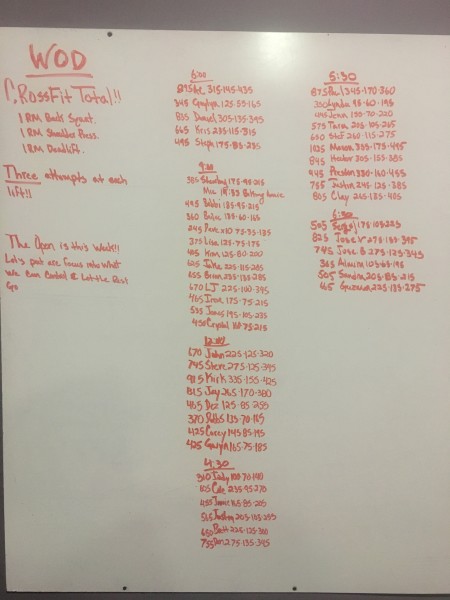 WOD
CrossFit Total!!
1 RM Back Squat.
1 RM Shoulder Press.
1 RM Deadlift.
Three attempts at each
lift!!
The Open is this week!!
Let's put are focus into what
We Can Control & Let the Rest
Go
6:00
895 315-145-435
345 125-55-165
805 Daniel 305-135-395
665 Kris 235-115-315
495 Steph 185-85-225
9:00
385 175-95-215
445 Bobbi 135-95-215
360 135-60-165
245 Dave
375 Lisa 125-75-175
405 Kim 125-80-200
655 225-115-285
655 Brian 235-135-285
670 LJ 225-100-345
465 175-75-215
535 195-105-235
430 Crystal 75-215
12:00
670 John 225-125-320
745 Steve 275-125-345
915 Kirk 335-155-425
815 Jay 265-170-380
465 Dez 125-85-255
370 135-70-165
425 Corey 145-85-195
425 165-75-185
4:30
310 Judy 100-70-140
605 Cole 235-95-270
455 Jamie 165-85-205
565 205-105-255
650 Brett 225-125-300
755 Ben 275-135-345
5:30
875 Paul 345-170-360
Lynda 95-60-195
445 Jenn 155-70-220
575 Tara 205-105-265
650 Stef 260-115-275
1025 Mason 375-175-475
845 Hector 305-155-385
945 Preston 330-160-455
755 Justin 245-125-385
805 Clay 265-135-405
6:30
505 175-105-225
825 Jose V 275-155-395
745 Jose B 275-125-345
365
505 Sandra 205-85-215
225-135-275